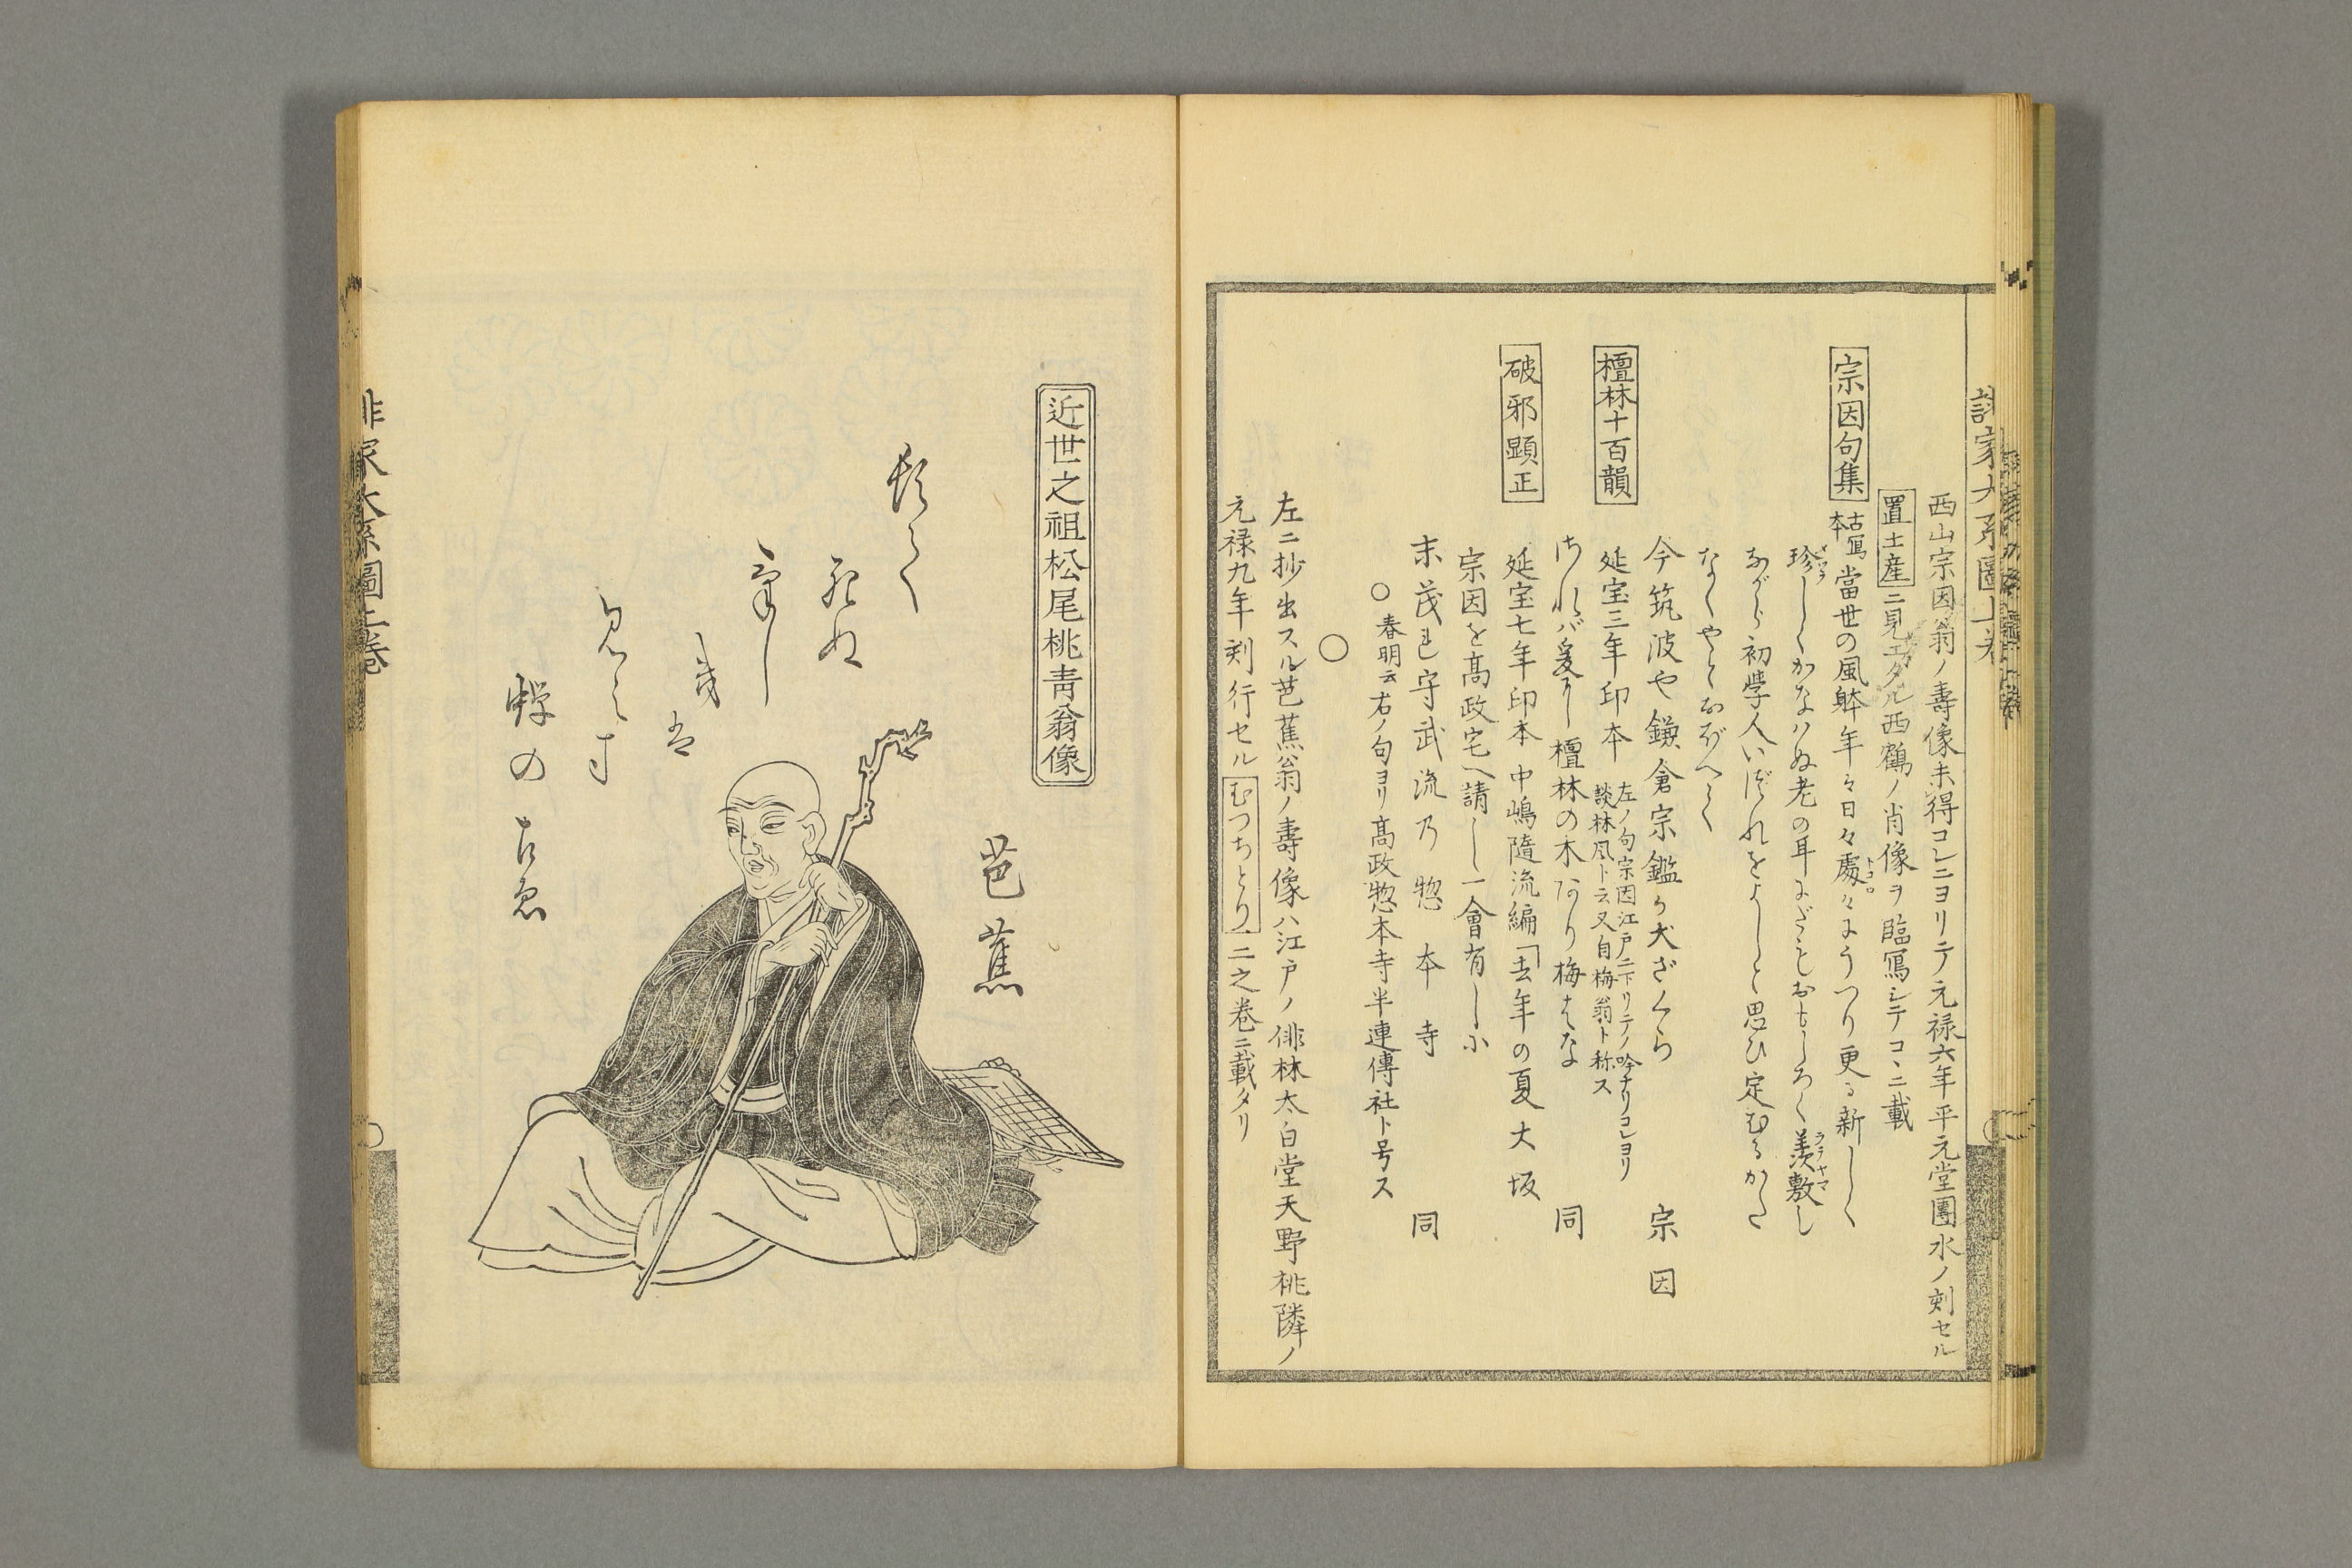 西山宗因翁ノ壽像未得コレニヨリテ元禄六年平元堂團水ノ刻セル
置土産ニ見エタル西鶴ノ肖像ヲ臨寫シテコヽニ載
宗因句集 古寫本 當世の風躰年々日々處々にうつり更る新しく
珍しくかなハぬ老の耳にざもおもしろく羨敷し
ながら初學人いづれをよしと思ひ定むるかた
なくやとおぼへく
今筑波や鎌倉宗鑑か犬ざくら 宗因
檀林十百韻 延宝三年印本 左ノ句宗因江戸ニ下リテノ吟ナリコレヨリ談林風ト云又自梅翁ト称ス
されバ爰に檀林の木あり梅はな 同
破邪顕正 延宝七年印本 中嶋隨流編「去年の夏大坂
宗因を高政宅へ請し一會有しに
末茂れ守武流乃惣本寺 同
○春明云右ノ句ヨリ高政惣本寺半連傳社ト号ス
○
左ニ抄出スル芭蕉翁ノ壽像ハ江戸ノ俳林太白堂天野桃隣ノ
元禄九年刻行セルむつちとり二之巻ニ載タリ
近世之祖松尾桃青翁像
芭蕉
頓て
死ぬ
けしき
は
見えす
蝉の声
俳家大系圖上巻